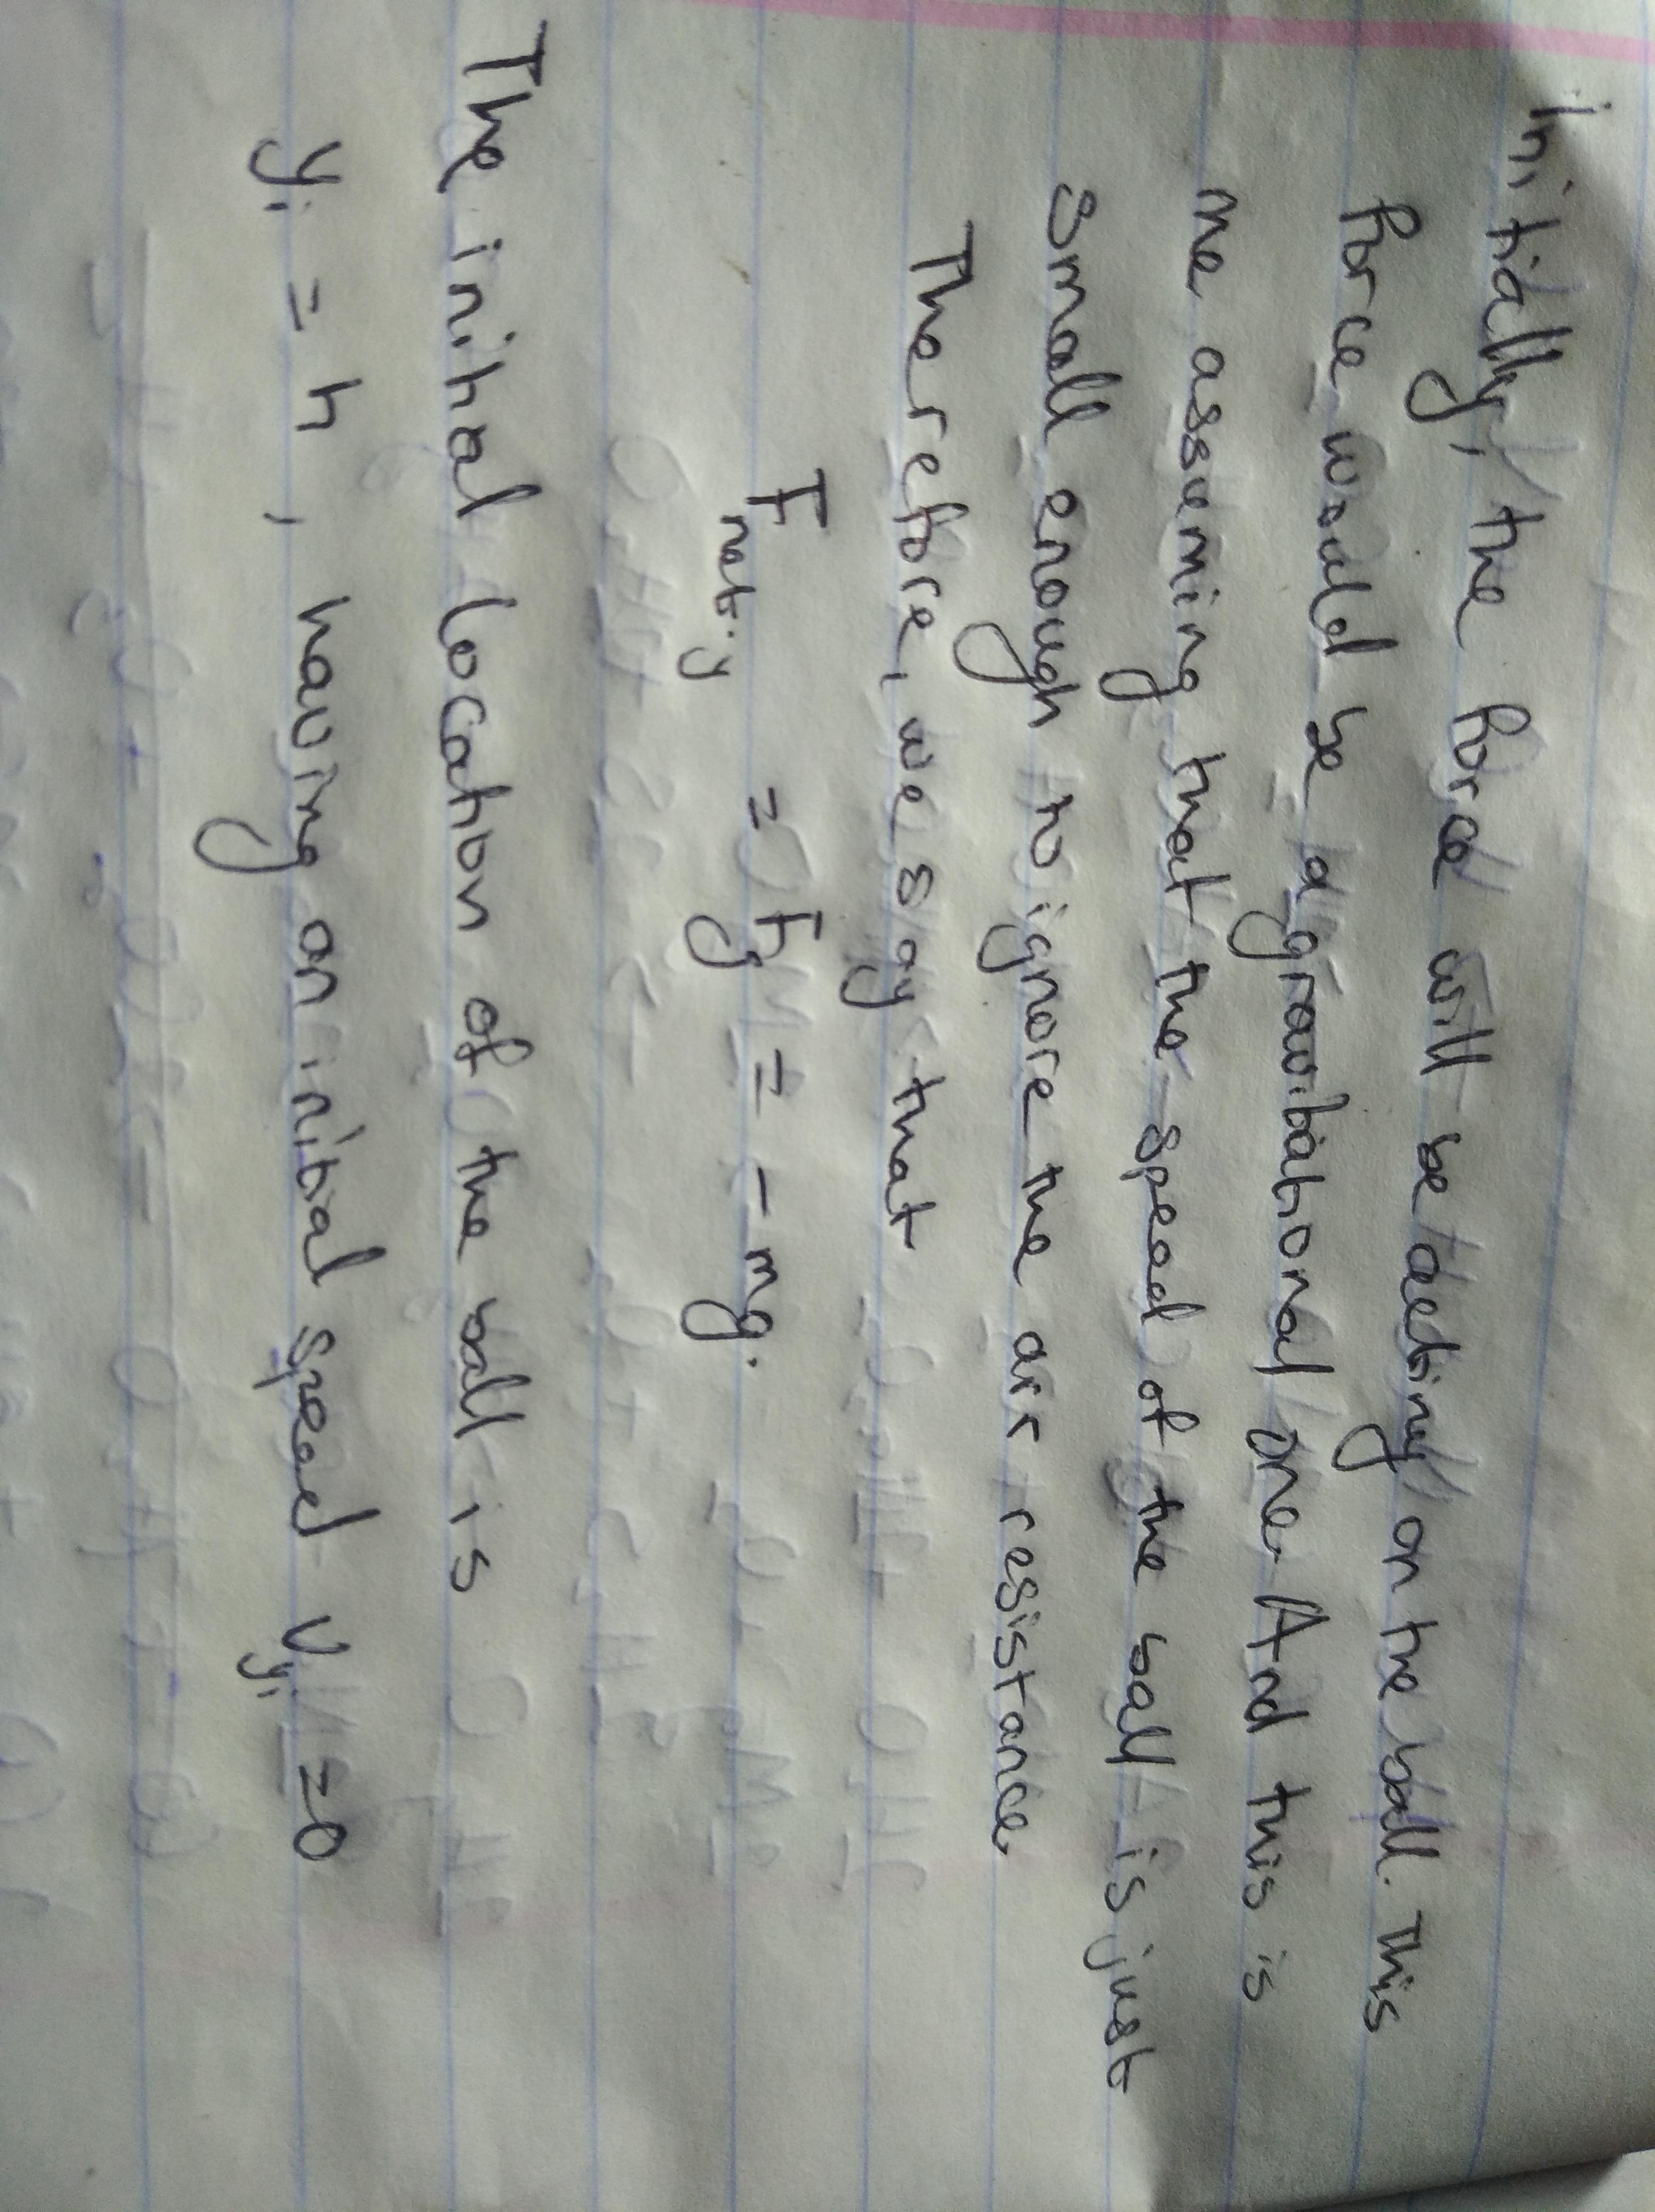 Initially, the force will be acting on the ball. This
force would be a gravitational one. And this is
me assuming that the speed of the ball is just
small enough to ignore the air resistance
Therefore, we say that
F net.y = Fg = - mg.
The initial location of the ball is
yi = h, having an initial speed Vyi = 0